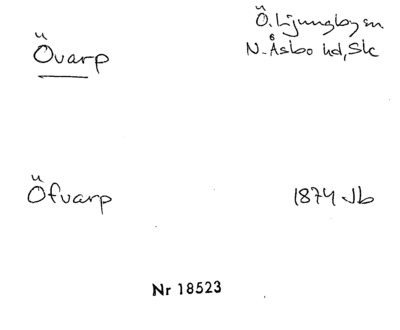 Övarp
Ö. Ljungby sn
N. Åsbo hd, Sk
Öfvarp
1874 Jb
Nr 18523